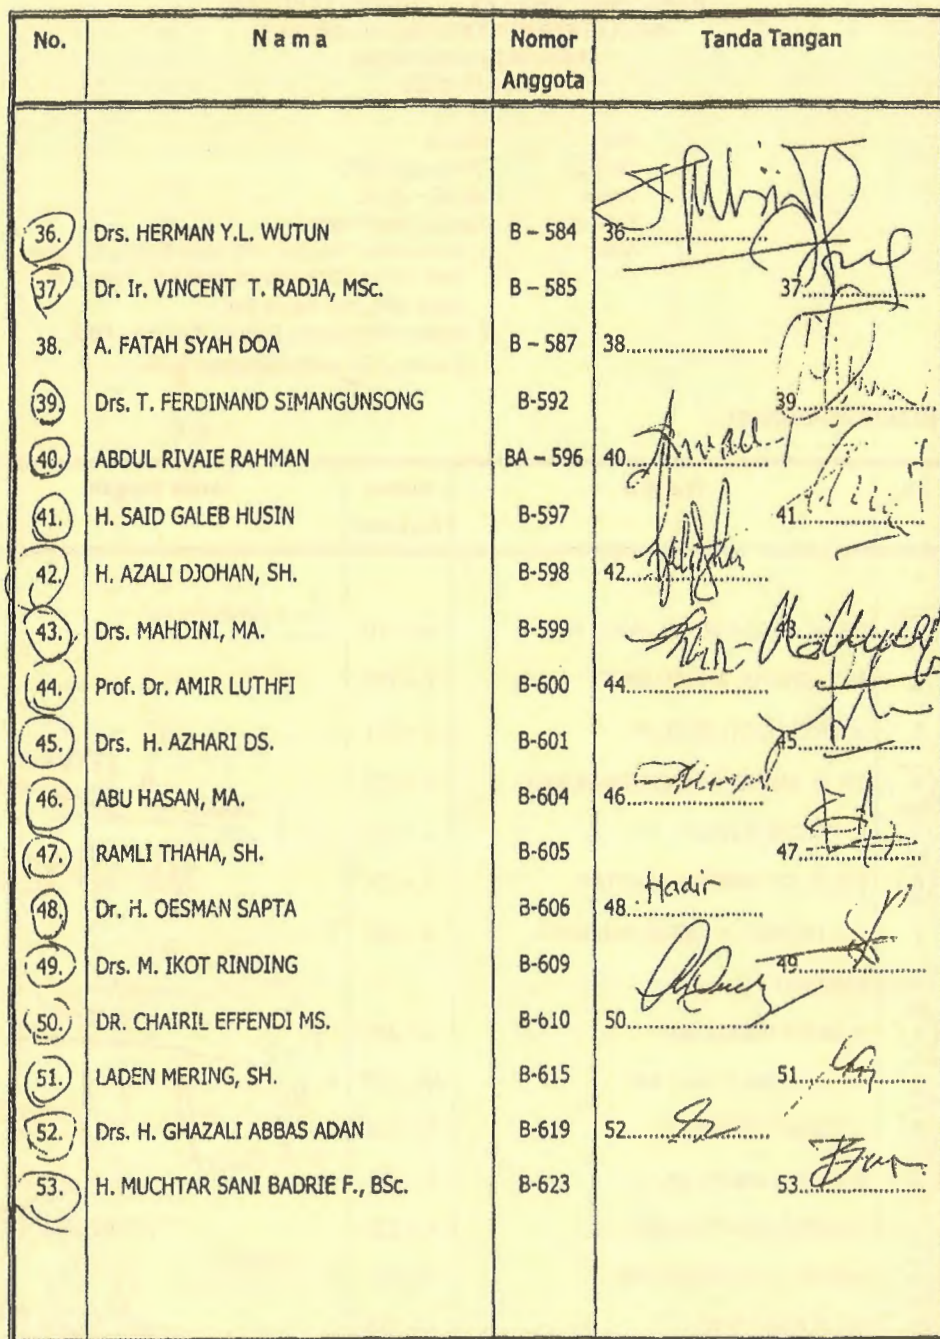 No. N a m a Nomor Anggota Tanda Tangan
36. Drs. HERMAN Y.L. WUTUN B – 584 36
37. Dr. Ir. VINCENT T. RADJA, MSc. B – 585 37
38. A. FATAH SYAH DOA B – 587 38
39. Drs. T. FERDINAND SIMANGUNSONG B-592 39
40. ABDUL RIVAIE RAHMAN BA – 596 40
41. H. SAID GALEB HUSIN B-597 41
42. H. AZALI DJOHAN, SH. B-598 42
43. Drs. MAHDINI, MA. B-599 43
44. Prof. Dr. AMIR LUTHFI B-600 44
45. Drs. H. AZHARI DS. B-601 45
46. ABU HASAN, MA. B-604 46
47. RAMLI THAHA, SH. B-605 47
48. Dr. H. OESMAN SAPTA B-606 48 Hadir
49. Drs. M. IKOT RINDING B-609 49
50. DR. CHAIRIL EFFENDI MS. B-610 50
51. LADEN MERING, SH. B-615 51
52. Drs. H. GHAZALI ABBAS ADAN B-619 52
53. H. MUCHTAR SANI BADRIE F., BSc. B-623 53